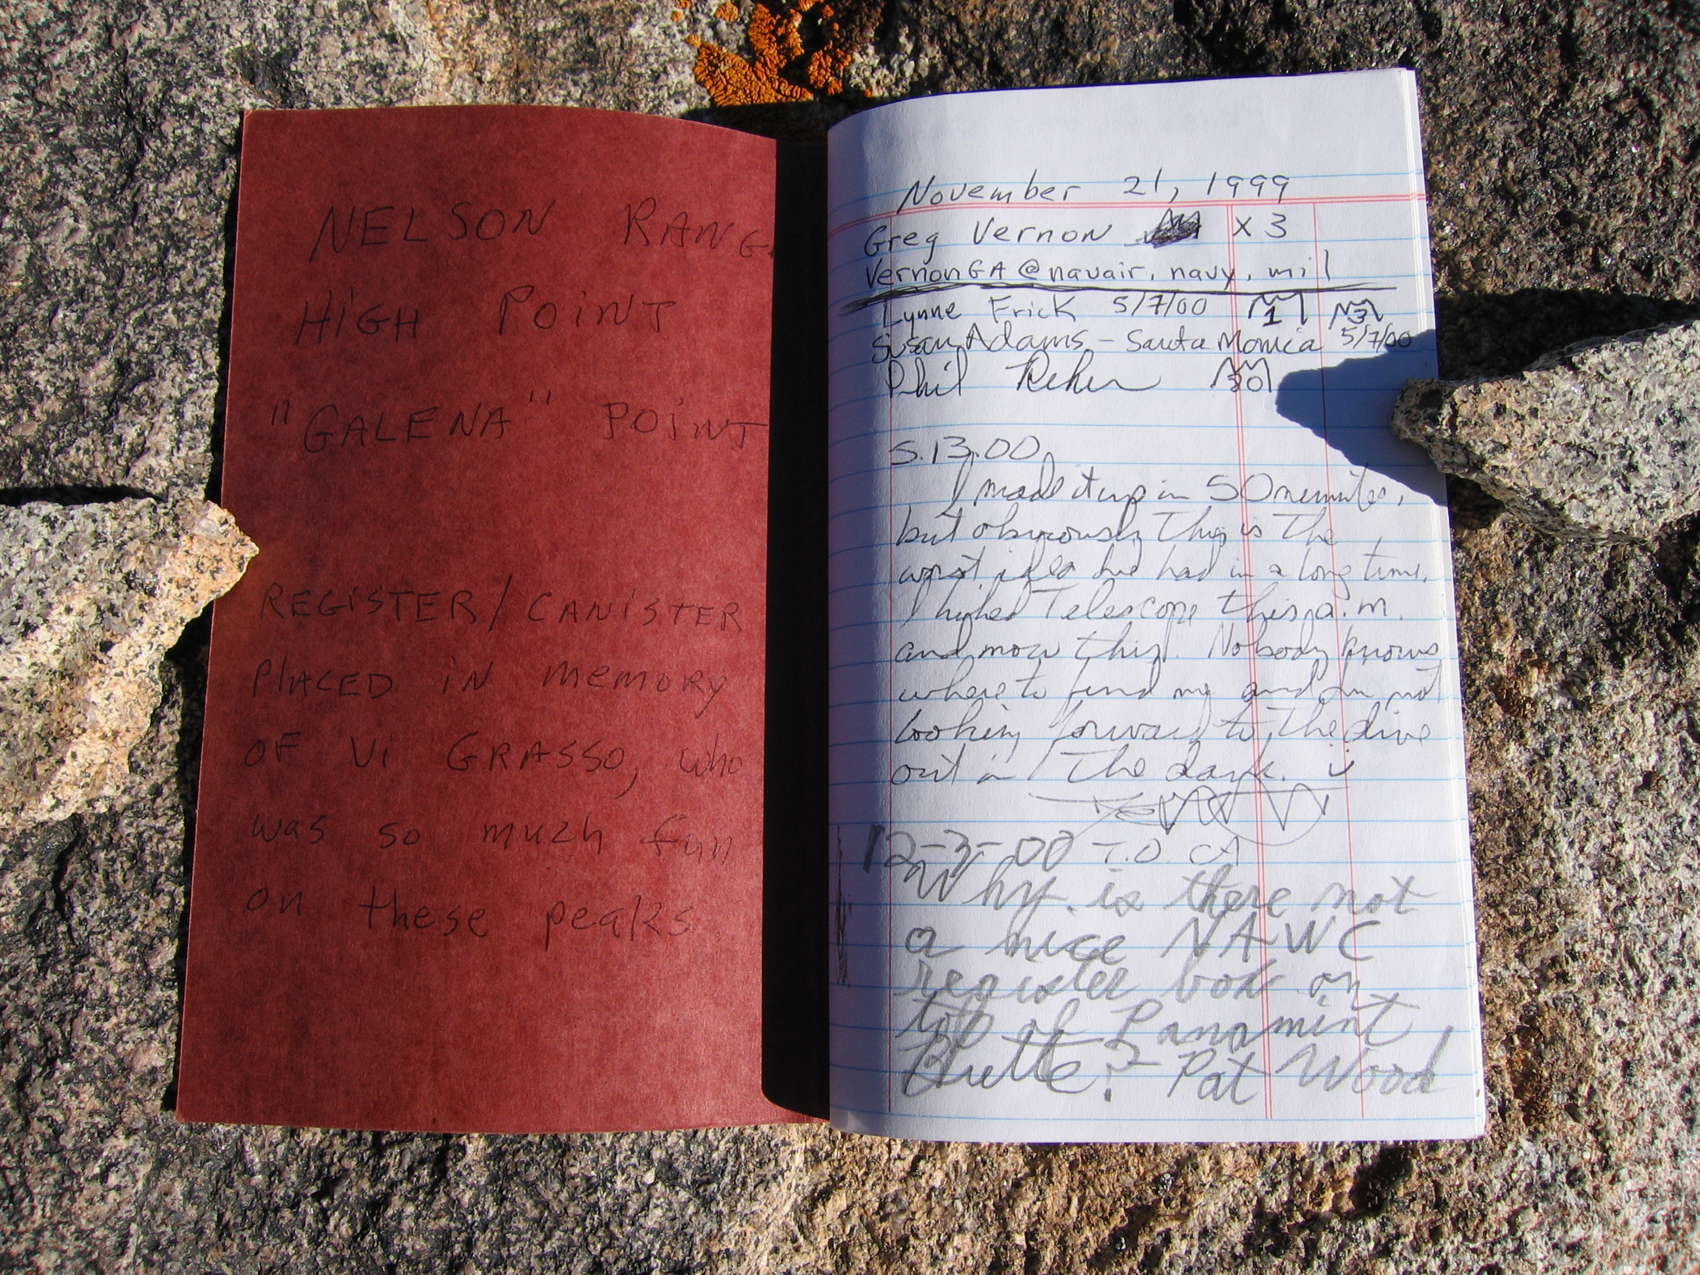 NELSON RANG
HIGH POINT
"GALENA" POINT
REGISTER/CANISTER
PLACED IN memory
OF Vi GRASSO, who
was so much fun
on these peaks
November 21, 1999
Greg Vernon X3
VernonGA@navair.navy.mil
Lynne Erick 5/7/00 1 3
Susan Adams - Santa Monica 5/7/00
Phil 30
5.13.00
I made it up in 50 minutes,
but obviously this is the
worst idea I've had in a long time.
I hiked Telescope this a.m.
and now this. Nobody knows
where to find me and I'm not
looking forward to the drive
out in the dark.
12-3-00 T.O. CA
Why is there not
a nice NAWC
register box on
top of Panamint
Butte? Pat Wood